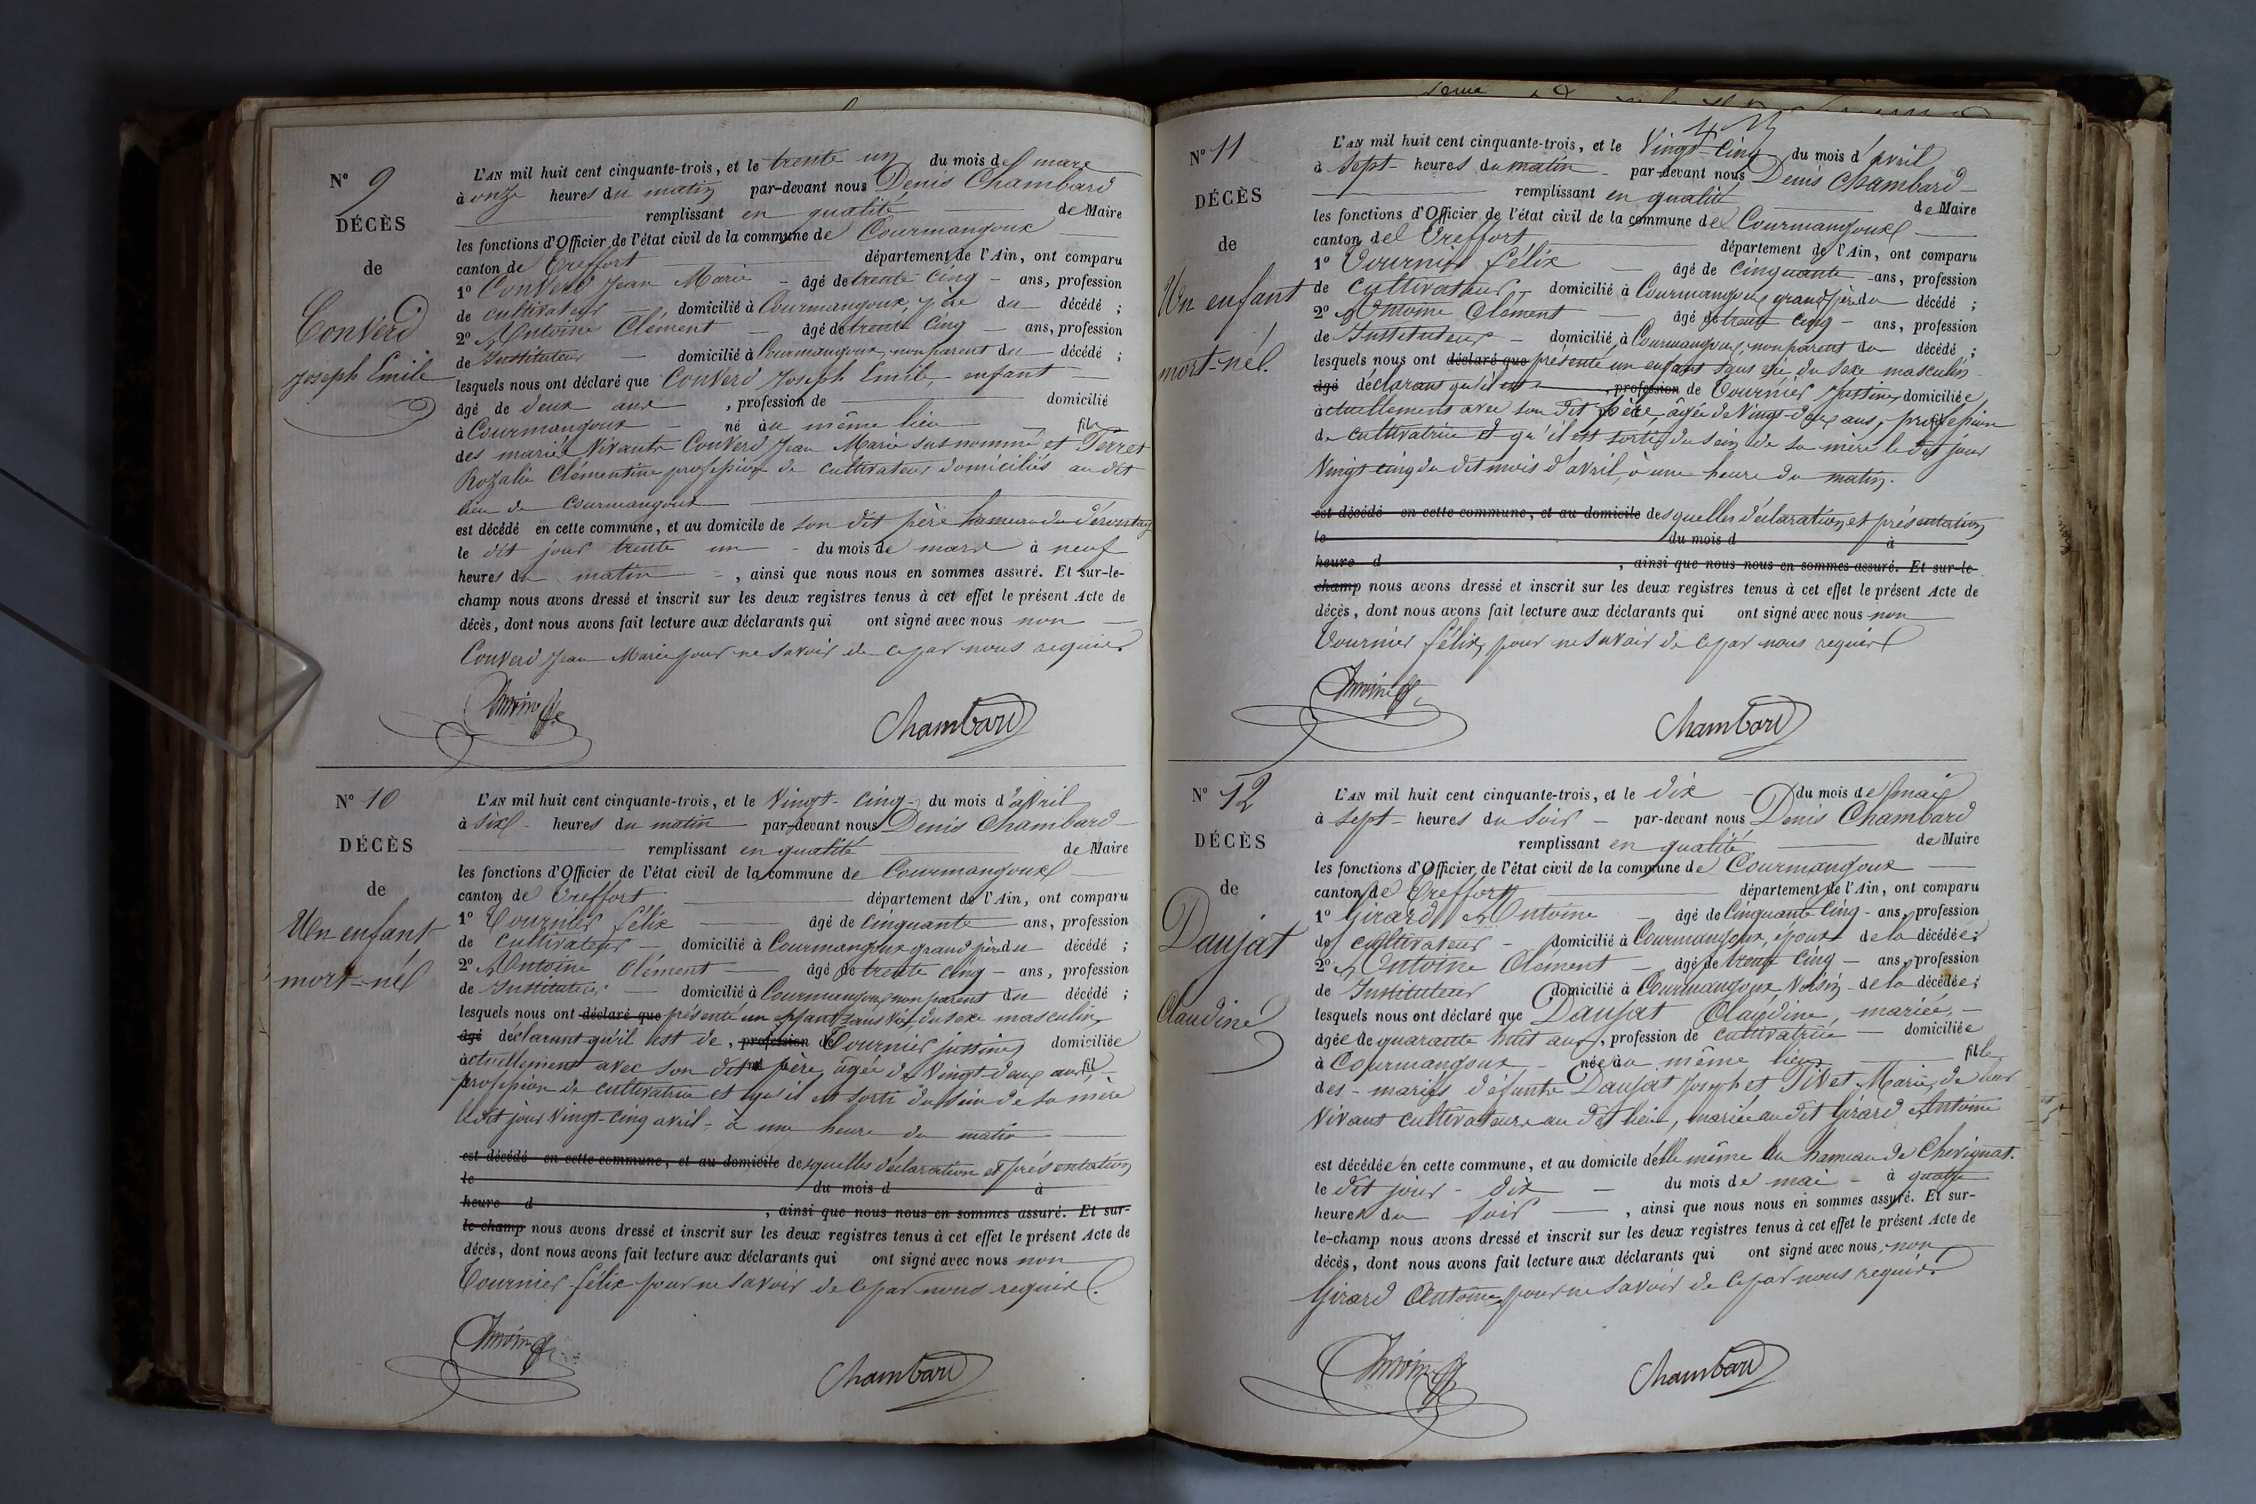 N° 9
DÉCÈS
de
Converd
Joseph Emile
L'AN mil huit cent cinquante-trois, et le trente un du mois de mars
à onze heures du matin par-devant nous Denis Chambard
remplissant en qualité de Maire
les fonctions d'Officier de l'état civil de la commune de Courmangoux
canton de Treffort département de l'Ain, ont comparu
1° Converd Jean Marie âgé de trente cinq ans, profession
de cultivateur domicilié à Courmangoux, père du décédé ;
2° Antoine Clément âgé de trente cinq ans, profession
de Instituteur domicilié à Courmangoux, non parent du décédé ;
lesquels nous ont déclaré que Converd Joseph Emile, enfant
âgé de deux ans , profession de domicilié
à Courmangoux né au même lieu fils
des mariés vivants Converd Jean Marie susnommé et Perret
Rozalie Clémentine profession de cultivateurs domiciliés au dit
lieu de Courmangoux
est décédé en cette commune, et au domicile de son dit père hameau de
le dit jour trente un du mois de mars à neuf
heures du matin , ainsi que nous nous en sommes assuré. Et sur-le-
champ nous avons dressé et inscrit sur les deux registres tenus à cet effet le présent Acte de
décès, dont nous avons fait lecture aux déclarants qui ont signé avec nous non
Converd Jean Marie pour ne savoir de ce par nous requis
Antoine Chambard
N° 10
DÉCÈS
de
Un enfant
mort-né
L'AN mil huit cent cinquante-trois, et le vingt-cinq du mois d'avril
à six heures du matin par-devant nous Denis Chambard
remplissant en qualité de Maire
les fonctions d'Officier de l'état civil de la commune de Courmangoux
canton de Treffort département de l'Ain, ont comparu
1° Tournier Félix âgé de cinquante ans, profession
de cultivateur domicilié à Courmangoux grand père du décédé ;
2° Antoine Clément âgé de trente cinq ans, profession
de Instituteur domicilié à Courmangoux non parent du décédé ;
lesquels nous ont déclaré que présenté un enfant sans vie du sexe masculin
âgé déclarant qu'il est de , profession de Tournier Justine domiciliée
actuellement avec son dit père, âgée de vingt-deux ans, fil
profession de cultivatrice et qu'il est sorti du sein de sa mère
le dit jour vingt-cinq avril à une heure du matin
est décédé en cette commune, et au domicile desquelles déclaration et présentation
le du mois d à
heure d , ainsi que nous nous en sommes assuré. Et sur-
le-champ nous avons dressé et inscrit sur les deux registres tenus à cet effet le présent Acte de
décès, dont nous avons fait lecture aux déclarants qui ont signé avec nous non
Tournier Félix pour ne savoir de ce par nous requis.
Antoine Chambard
N° 11
DÉCÈS
de
Un enfant
mort-né.
L'AN mil huit cent cinquante-trois, et le vingt-cinq du mois d'avril
à sept heures du matin par-devant nous Denis Chambard
remplissant en qualité de Maire
les fonctions d'Officier de l'état civil de la commune de Courmangoux
canton de Treffort département de l'Ain, ont comparu
1° Tournier Félix âgé de cinquante ans, profession
de cultivateur domicilié à Courmangoux grand père du décédé ;
2° Antoine Clément âgé de trente cinq ans, profession
de Instituteur domicilié à Courmangoux, non parent du décédé ;
lesquels nous ont déclaré que présenté un enfant sans vie du sexe masculin
âgé déclarant qu'il est , profession de Tournier Justine, domiciliée
actuellement avec son dit père, âgée de vingt-deux ans, profession
de cultivatrice et qu'il est sorti du sein de sa mère le dit jour
vingt cinq du dit mois d'avril, à une heure du matin.
est décédé en cette commune, et au domicile desquelles déclaration et présentation
le du mois d à
heure d , ainsi que nous nous en sommes assuré. Et sur-le-
champ nous avons dressé et inscrit sur les deux registres tenus à cet effet le présent Acte de
décès, dont nous avons fait lecture aux déclarants qui ont signé avec nous non
Tournier Félix, pour ne savoir de ce par nous requis
Antoine Chambard
N° 12
DÉCÈS
de
Daujat
Claudine
L'AN mil huit cent cinquante-trois, et le dix du mois de mai
à sept heures du soir par-devant nous Denis Chambard
remplissant en qualité de Maire
les fonctions d'Officier de l'état civil de la commune de Courmangoux
canton de Treffort département de l'Ain, ont comparu
1° Girard Antoine âgé de cinquante cinq ans, profession
de cultivateur domicilié à Courmangoux, époux de la décédée ;
2° Antoine Clément âgé de trente cinq ans, profession
de Instituteur domicilié à Courmangoux voisin de la décédée ;
lesquels nous ont déclaré que Daujat Claudine, mariée,
âgée de quarante huit ans, profession de cultivatrice domiciliée
à Courmangoux née au même lieu fille
des mariés défunts Daujat Joseph et Pivet Marie, de leur
vivant cultivateurs au dit lieu, mariée au dit Girard Antoine
est décédée en cette commune, et au domicile d'elle même au hameau de Chevignat.
le dit jour dix du mois de mai à quatre
heures du soir , ainsi que nous nous en sommes assuré. Et sur-
le-champ nous avons dressé et inscrit sur les deux registres tenus à cet effet le présent Acte de
décès, dont nous avons fait lecture aux déclarants qui ont signé avec nous non
Girard Antoine, pour ne savoir de ce par nous requis
Antoine Chambard